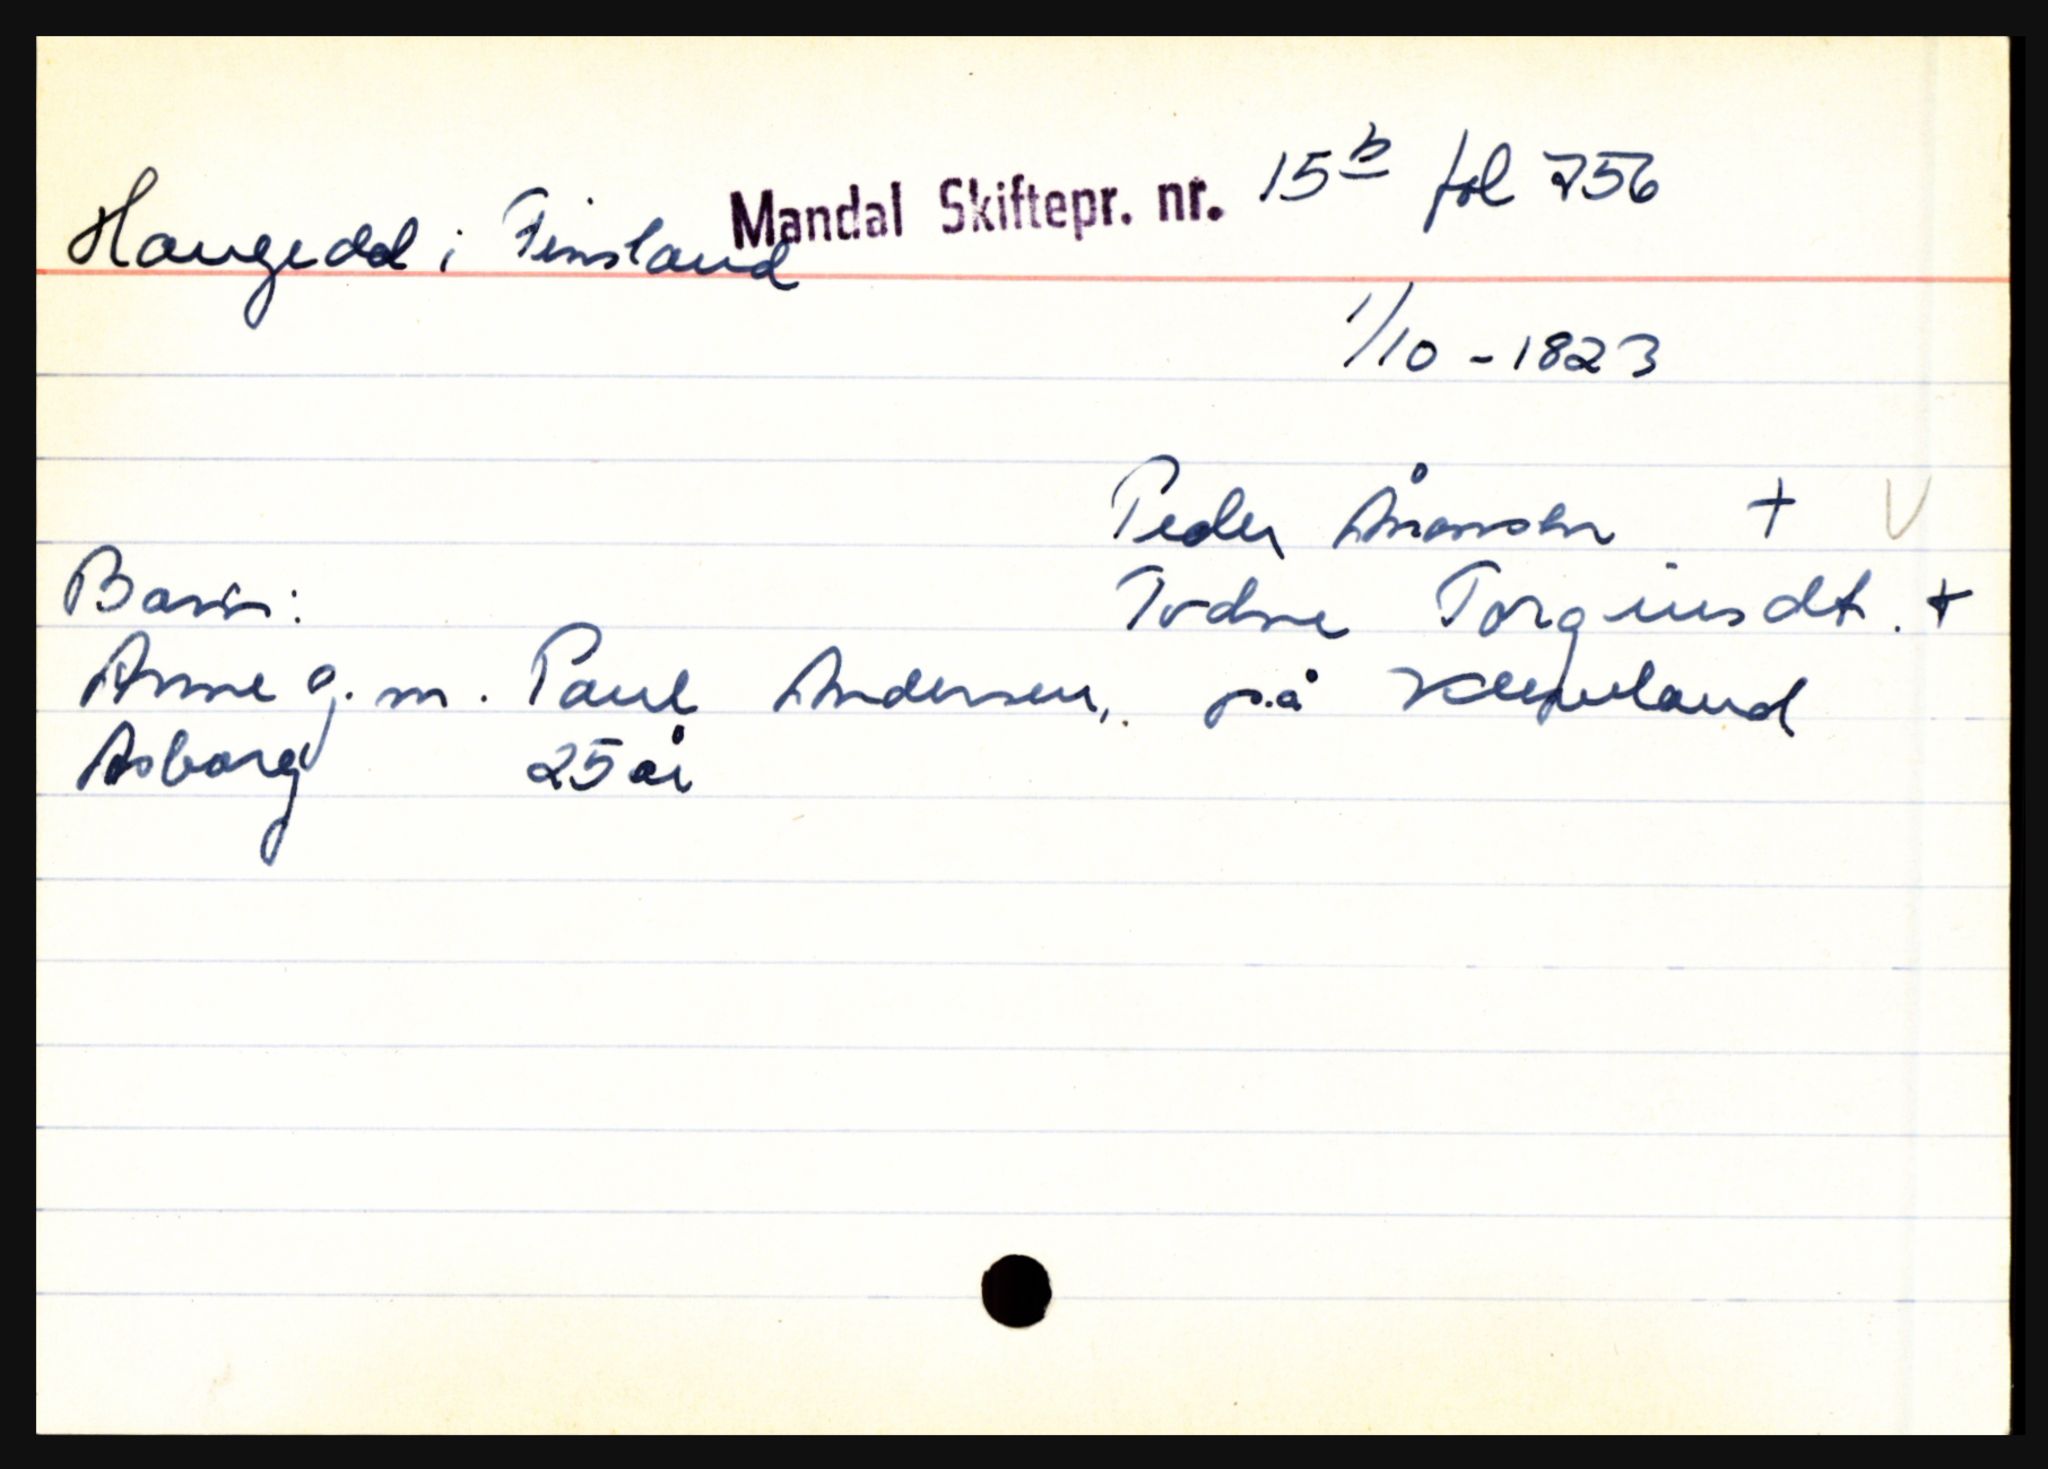 Haugedal i Finsland Mandal Skiftepr. nr. 15b fol 756
1/10 - 1823
Peder Ånonsen + V
Barn: Todne Torgiusdt. +
Anne g. m. Paul Andersen, på Kleveland
Asborg 25 år